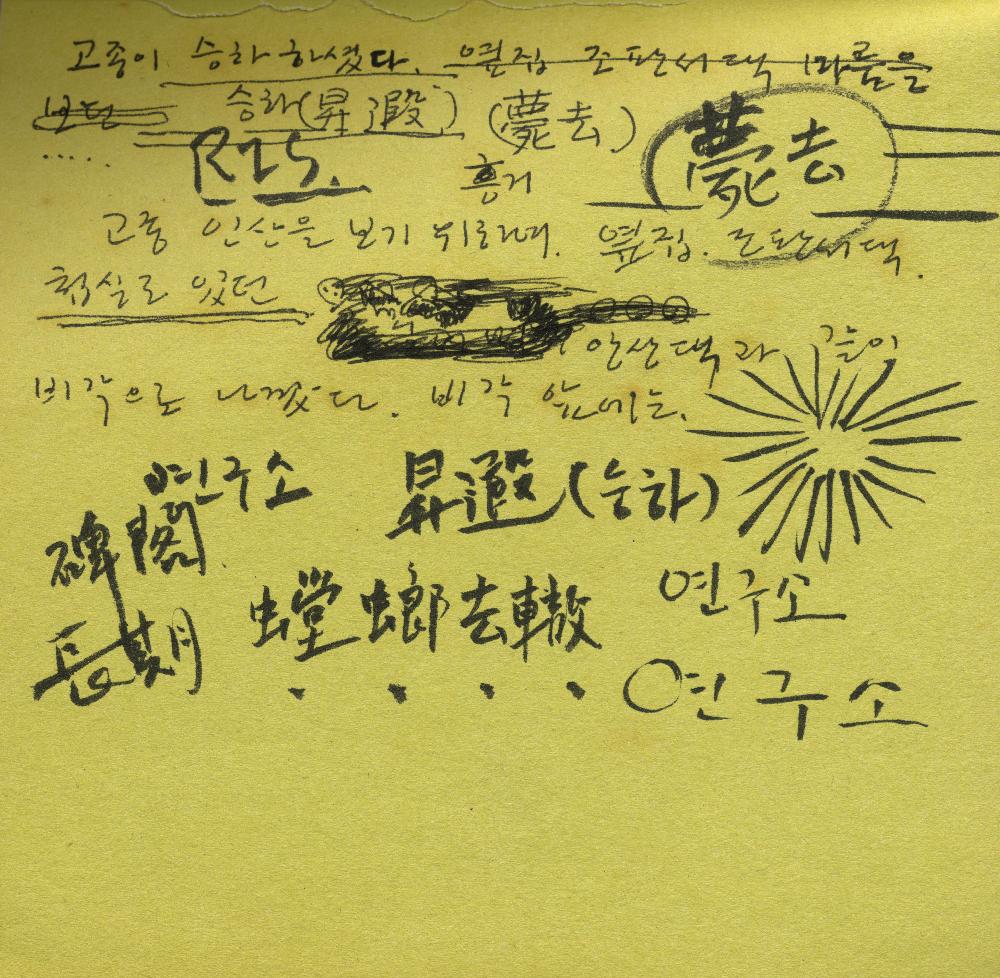 고종이 승하 하셨다. 옆집 조판서댁 마름을
보던 승하(昇遐) (薨去)
..... R25. 흥거 薨去
고종 인산을 보기 위하여. 옆집. 조판서댁.
침실로 있던
안산댁과 같이
비각으로 나갔다. 비각 앞에는.
연구소 昇遐(승하)
碑閣
長期 螳螂去轍 연구소
연구소